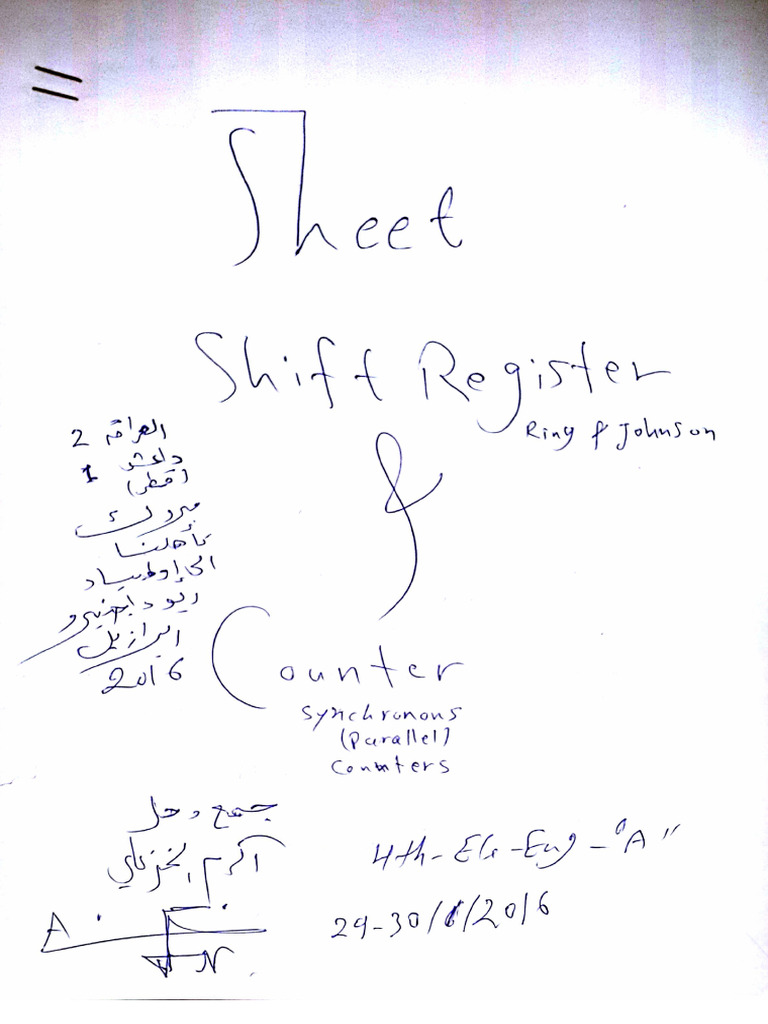 Sheet
Shift Register
Ring & Johnson
&
Counter
Synchronous
(Parallel)
Counters
العراق 2
داعش 1
(قطر)
مبروك
تأهلنا
ريو دي جنيرو
البرازيل
2016
جمع وحل
أكرم
4th-Ele-Eng-"A"
29-30/1/2016